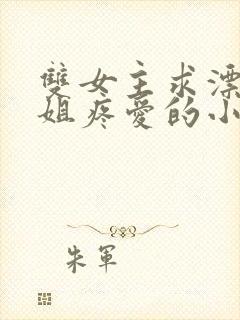 雙女主求漂
姐疼愛的小
朱軍